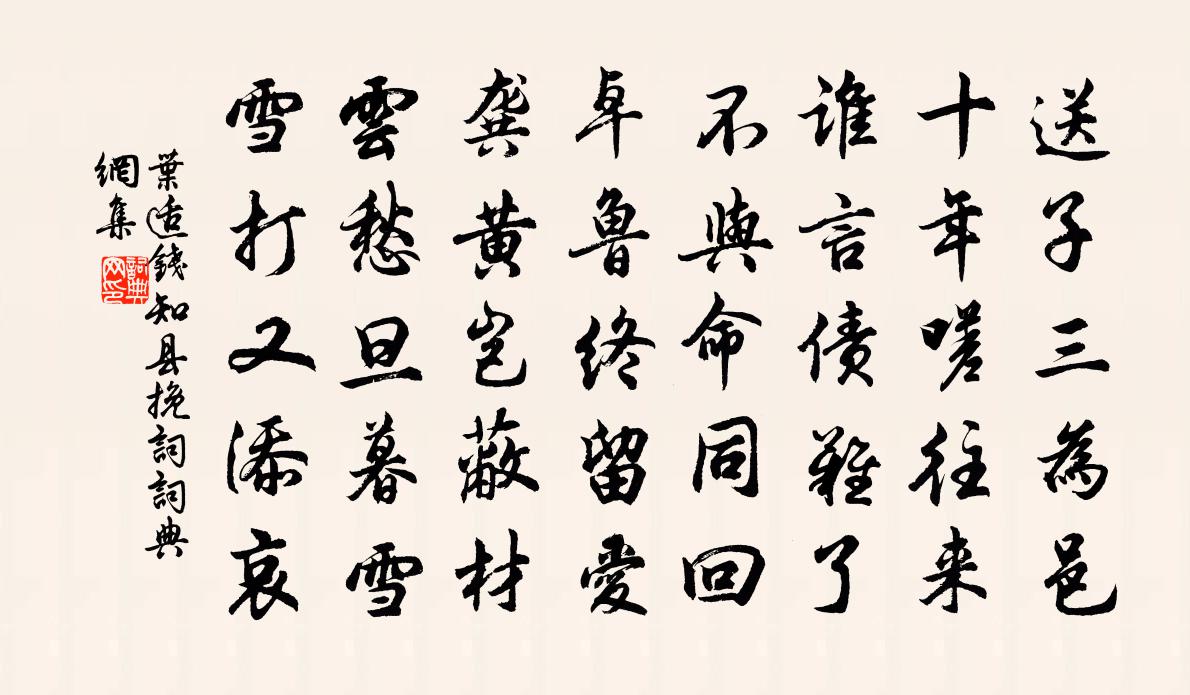 送子三為邑
十年嗟往来
谁言债難了
不與命同回
卓魯終留愛
龔黄岂蔽材
雲愁旦暮雪
雪打又添哀
葉适錢知县挽詞詞典
網集
詞典
网印